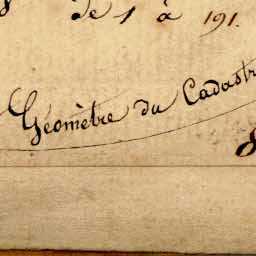 8 de 1 à 191.
Géomètre du Cadastr
8